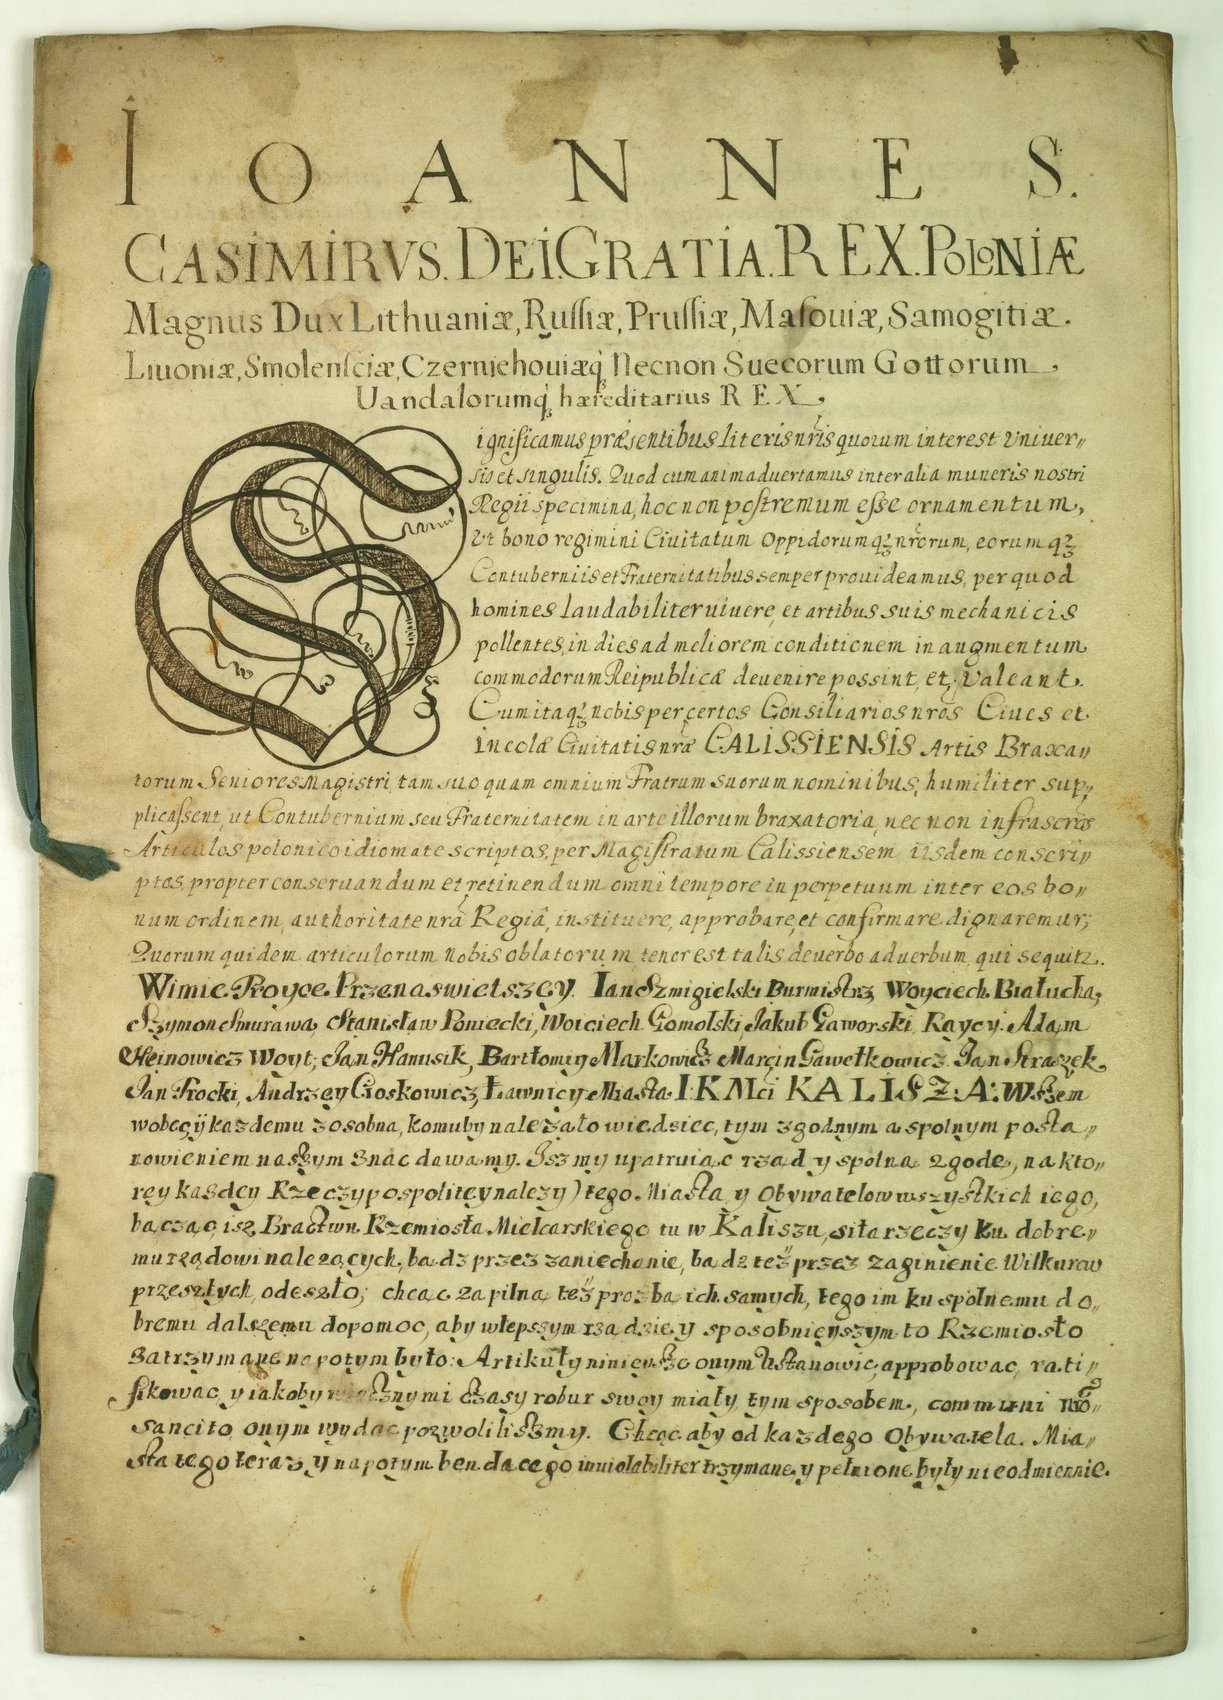 IOANNES.
CASIMIRVS. DEI GRATIA. REX. POLONIÆ
Magnus Dux Lithuaniæ, Russiæ, Prussiæ, Masouiæ, Samogitiæ.
Liuoniæ, Smolensciæ, Czerniehouiæq; Necnon Suecorum Gottorum,
Uandalorumq; hæreditarius REX,
Significamus præsentibus literis nr̃is quorum interest vniuer„
sis et singulis. Quod cum animaduertamus inter alia muneris nostri
Regii specimina, hoc non postremum esse ornamentum,
Vt bono regimini Ciuitatum Oppidorumq; nr̃orum, eorumq;
Contuberniis et Fraternitatibus semper prouideamus, per quod
homines laudabiliter uiuere, et artibus suis mechanicis
pollentes, in dies ad meliorem conditionem in augmentum
commodorum Reipublicæ deuenire possint, et valeant.
Cum itaq; nobis per certos Consiliarios nr̃os Ciues et
incolæ Ciuitatis nr̃æ CALISSIENSIS Artis Braxa„
torum Seniores Magistri, tam suo quam omnium Fratrum suorum nominibus, humiliter sup„
plicassent, ut Contubernium seu Fraternitatem in arte illorum braxatoria, nec non infrascr̃os
Articulos polonico idiomate scriptos, per Magistratum Calissiensem iisdem conscri„
ptos, propter conseruandum et retinendum omni tempore in perpetuum inter eos bo„
num ordinem, authoritate nr̃a Regiâ, instituere, approbare, et confirmare dignaremur;
Quorum quidem articulorum nobis oblatorum, tenor est talis de uerbo ad uerbum, qui sequitr.
W imie Troyce Przenaswietszey. Ian Szmigielski Burmistrz, Woyciech Białucha,
Szymon Smurawa, Stanisław Poniecki, Woiciech Gomolski Jakub Gaworski, Raycy. Adam
Heinowicz Woyt; Jan Hanusik, Bartłomiy Markowicz Marcin Gawełkowicz Jan Straszek
Jan Trocki, Andrzey Croskowicz, Ławnicy Miasta I:K Mci KALISZ:A: Wszem
wobec ÿ kazdemu zosobna, komuby nalezało wiedziec, tym zgodnym a spolnym posta„
nowieniem naszym znac dawamy. Jsz my upatruiąc rząd y spolną zgodę, na kto„
rey kasdey Rzeczypospolitey nalezy) tego Miasta y Obywatelow wszystkich iego,
bacząc isz Bractwu Rzemiosła Mielcarskiego tu w Kaliszu, siła rzeczy ku dobre„
mu rządowi nalezących, badz przez zaniechanie, badz też przez zaginienie Wilkurow
przeszłych, odeszło; chcąc za pilną też prozbą ich samych, tego im ku spolnemu do„
bremu dalszemu dopomoc, aby w lepszym rządzie y sposobnieyszym to Rzemiosło
zatrzymane napotym było: Artikuły ninieysze onym Ustanowic, approbowac, rati„
fikowac, y iakoby wiecznymi czasy robur swoy miały, tym sposobem, communi
sancito, onym wydac pozwolilismy. Chcąc aby od kazdego Obywatela Mia„
sta tego teraz y napotym bendącego inuiolabiliter trzymane y pełnione były nieodmiennie.